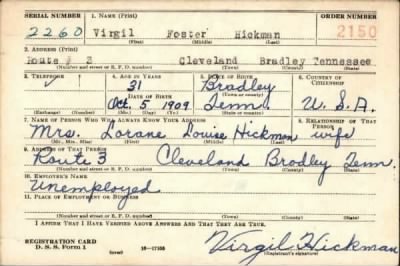 SERIAL NUMBER 1. NAME (Print) ORDER NUMBER
2260 Virgil Foster Hickman 2150
(First) (Middle) (Last)
2. ADDRESS (Print)
Route # 3 Cleveland Bradley Tennessee
(Number and street or R. F. D. number) (Town) (County) (State)
3. TELEPHONE 4. AGE IN YEARS 5. PLACE OF BIRTH 6. COUNTRY OF CITIZENSHIP
31 Bradley
DATE OF BIRTH (Town or county)
Oct. 5 1909 Tenn. U. S. A.
(Exchange) (Number) (Mo.) (Day) (Yr.) (State or country)
7. NAME OF PERSON WHO WILL ALWAYS KNOW YOUR ADDRESS 8. RELATIONSHIP OF THAT PERSON
Mrs. Lorane Louise Hickman wife
(Mr., Mrs., Miss) (First) (Middle) (Last)
9. ADDRESS OF THAT PERSON
Route 3 Cleveland Bradley Tenn.
(Number and street or R. F. D. number) (Town) (County) (State)
10. EMPLOYER'S NAME
Unemployed
11. PLACE OF EMPLOYMENT OR BUSINESS
(Number and street or R. F. D. number) (Town) (County) (State)
I AFFIRM THAT I HAVE VERIFIED ABOVE ANSWERS AND THAT THEY ARE TRUE.
REGISTRATION CARD
D. S. S. Form 1 (over) 16—17105 Virgil Hickman
(Registrant's signature)